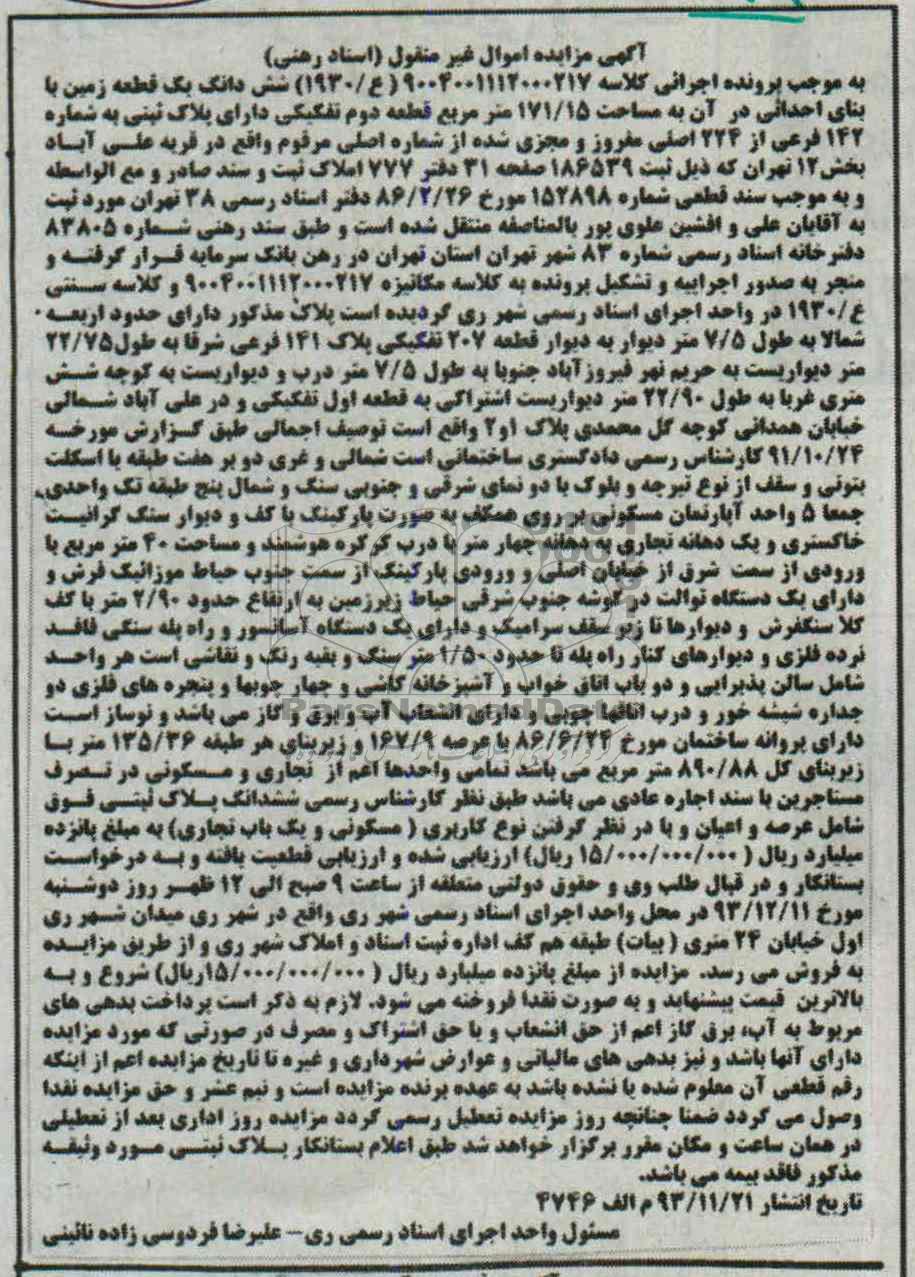 آگهی مزایده اموال غیر منقول (اسناد رهنی)
به موجب پرونده اجرائی کلاسه ۹۰۰۴۰۰۱۱۱۲۰۰۰۲۱۷ ( ع/۱۹۳۰) شش دانک یک قطعه زمین با
بنای احداثی در آن به مساحت ۱۷۱/۱۵ متر مربع قطعه دوم تفکیکی دارای پلاک ثبتی به شماره
۱۴۲ فرعی از ۲۲۴ اصلی مفروز و مجزی شده از شماره اصلی مرقوم واقع در قریه علی آباد
بخش۱۲ تهران که ذیل ثبت ۱۸۶۵۳۹ صفحه ۳۱ دفتر ۷۷۷ املاک ثبت و سند صادر و مع الواسطه
و به موجب سند قطعی شماره ۱۵۲۸۹۸ مورخ ۸۶/۲/۲۶ دفتر اسناد رسمی ۳۸ تهران مورد ثبت
به آقایان علی و افشین علوی پور بالمناصفه منتقل شده است و طبق سند رهنی شماره ۸۳۸۰۵
دفترخانه اسناد رسمی شماره ۸۳ شهر تهران استان تهران در رهن بانک سرمایه قرار گرفته و
منجر به صدور اجراییه و تشکیل پرونده به کلاسه مکانیزه ۹۰۰۴۰۰۱۱۱۲۰۰۰۲۱۷ و کلاسه سنتی
ع/۱۹۳۰ در واحد اجرای اسناد رسمی شهر ری گردیده است پلاک مذکور دارای حدود اربعه
شمالا به طول ۷/۵ متر دیوار به دیوار قطعه ۲۰۷ تفکیکی پلاک ۱۴۱ فرعی شرقا به طول۲۲/۷۵
متر دیواریست به حریم نهر فیروزآباد جنوبا به طول ۷/۵ متر درب و دیواریست به کوچه شش
متری غربا به طول ۲۲/۹۰ متر دیواریست اشتراکی به قطعه اول تفکیکی و در علی آباد شمالی
خیابان همدانی کوچه گل محمدی پلاک ۱و۲ واقع است توصیف اجمالی طبق گزارش مورخه
۹۱/۱۰/۲۴ کارشناس رسمی دادگستری ساختمانی است شمالی و غری دو بر هفت طبقه با اسکلت
بتونی و سقف از نوع تیرچه و بلوک با دو نمای شرقی و جنوبی سنگ و شمال پنج طبقه تک واحدی
جمعا ۵ واحد آپارتمان مسکونی بر روی همکف به صورت پارکینک با کف و دیوار سنک گرانیت
خاکستری و یک دهانه تجاری به دهانه چهار متر با درب کرکره هوشمند و مساحت ۴۰ متر مربع با
ورودی از سمت شرق از خیابان اصلی و ورودی پارکینک از سمت جنوب حیاط موزائیک فرش و
دارای یک دستگاه توالت در گوشه جنوب شرقی حیاط زیرزمین به ارتفاع حدود ۲/۹۰ متر با کف
کلا سنگفرش و دیوارها تا زیر سقف سرامیک و دارای یک دستگاه آسانسور و راه پله سنگی فاقد
نرده فلزی و دیوارهای کنار راه پله تا حدود ۱/۵۰ متر سنگ و بقیه رنگ و نقاشی است هر واحد
شامل سالن پذیرایی و دو باب اتاق خواب و آشپزخانه کاشی و چهار چوبها و پنجره های فلزی دو
جداره شیشه خور و درب اتاقها چوبی و دارای انشعاب آب و برق و گاز می باشد و نوساز است
دارای پروانه ساختمان مورخ ۸۶/۶/۲۴ با عرصه ۱۶۷/۹ و زیربنای هر طبقه ۱۳۵/۳۶ متر با
زیربنای کل ۸۹۰/۸۸ متر مربع می باشد تمامی واحدها اعم از تجاری و مسکونی در تصرف
مستاجرین با سند اجاره عادی می باشد طبق نظر کارشناس رسمی ششدانگ پلاک ثبتی فوق
شامل عرصه و اعیان و با در نظر گرفتن نوع کاربری ( مسکونی و یک باب تجاری) به مبلغ پانزده
میلیارد ریال ( ۱۵/۰۰۰/۰۰۰/۰۰۰ ریال) ارزیابی شده و ارزیابی قطعیت یافته و به درخواست
بستانکار و در قبال طلب وی و حقوق دولتی متعلقه از ساعت ۹ صبح الی ۱۲ ظهر روز دوشنبه
مورخ ۹۳/۱۲/۱۱ در محل واحد اجرای اسناد رسمی شهر ری واقع در شهر ری میدان شهر ری
اول خیابان ۲۴ متری ( بیات) طبقه هم کف اداره ثبت اسناد و املاک شهر ری و از طریق مزایده
به فروش می رسد. مزایده از مبلغ پانزده میلیارد ریال ( ۱۵/۰۰۰/۰۰۰/۰۰۰ریال) شروع و به
بالاترین قیمت پیشنهاید و به صورت نقدا فروخته می شود. لازم به ذکر است پرداخت بدهی های
مربوط به آب، برق گاز اعم از حق انشعاب و یا حق اشتراک و مصرف در صورتی که مورد مزایده
دارای آنها باشد و نیز بدهی های مالیاتی و عوارض شهرداری و غیره تا تاریخ مزایده اعم از اینکه
رقم قطعی آن معلوم شده یا نشده باشد به عهده برنده مزایده است و نیم عشر و حق مزایده نقدا
وصول می گردد ضمنا چنانچه روز مزایده تعطیل رسمی گردد مزایده روز اداری بعد از تعطیلی
در همان ساعت و مکان مقرر برگزار خواهد شد طبق اعلام بستانکار پلاک ثبتی مورد وثیقه
مذکور فاقد بیمه می باشد.
تاریخ انتشار ۹۳/۱۱/۲۱ م الف ۴۷۴۶
مسئول واحد اجرای اسناد رسمی ری– علیرضا فردوسی زاده نائینی
ParsNamadData